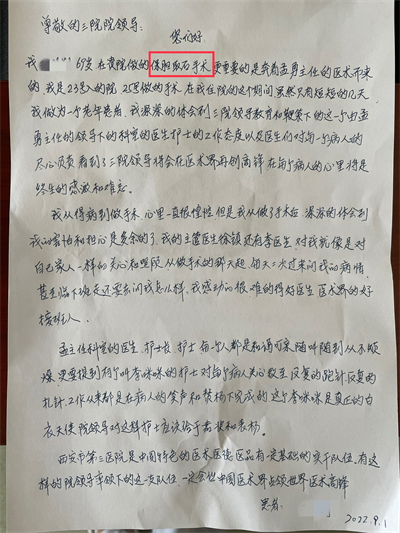 尊敬的三院院领导:
您们好
我 69岁在贵院做的保胆取石手术更重要的是奔着孟勇主任的医术而来
的我是23号入的院 25号做的手术在我住院的这个期间虽然只有短短的几天
我做为一个老年患者,我深深的体会到三院领导教育和鞭策下的这一个由孟
勇主任的领导下的科室的医生护士的工作态度以及医生们对每一个病人的
尽心负责看到了三院领导将会在医术界再创高锋在每个病人的心里将是
终生的感激和难忘。
我从得病到做手术心里一直很惶恐但是我从做了手术后深深的体会到
我的害怕和担心是多余的了,我的主管医生徐锁还有李医生对我就像是对
自己家人一样的关心和照顾从做手术的那天起每天二次过来问我的病情
甚至临下班走还要来问我怎么样,我感动的很难的得好医生医术界的好
接班人。
孟主任科室的医生护士长护士每个人都是和谒可亲随叫随到从不烦
燥更要提到有个叫李咪咪的护士对每个病人关心致至反复的跑针反复的
扎针工作从来都是在病人的笑声和赞扬下完成的这个李咪咪是真正的白
衣天使院领导对这样护士应该给于表扬和表杨。
西安市第三医院是中国特色的医术医德医品有一定基础的实干队伍,有这
样的院领导率领下的这一支队伍一定会使中国医术界占领世界医术高峰
患者:
2022.9.1